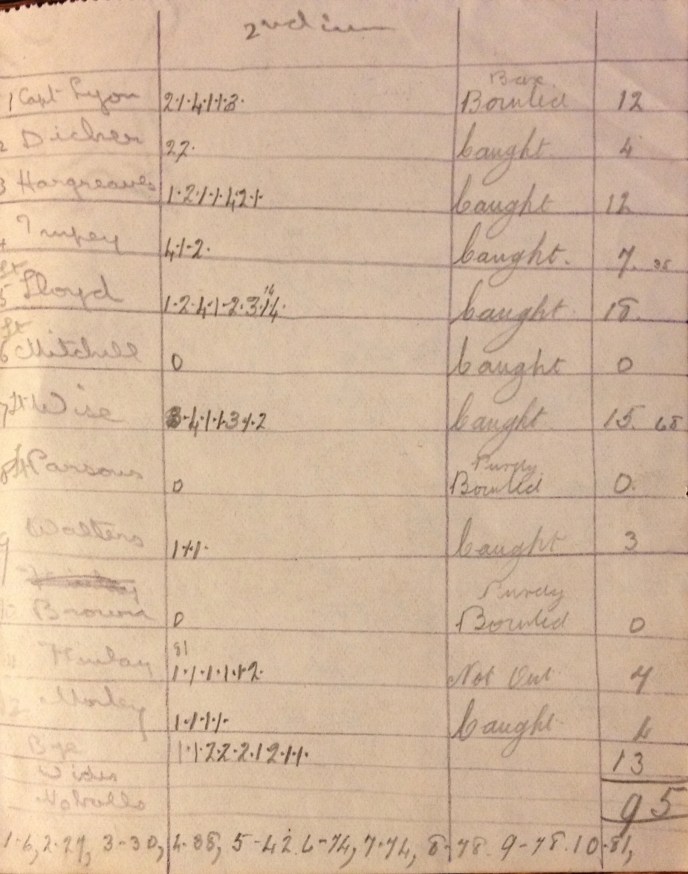 2nd inn
1 Capt Lyon 2·1·4·1·1·3· Bowled 12
2 Dicker 2 2· Caught 4
3 Hargreaves 1·2·1·1·1·4·2·1· Caught 12
4 Impey 4·1·2· Caught. 7. 35
5 Lloyd 1·2·4·1·2·3·1·4· Caught 18
6 Mitchell 0 Caught 0
7 Lt Wise 3·4·1·1·3·1·2 Caught 15 68
Purdy
8 Lt Parsons 0 Bowled 0.
9 Walters 1·1·1· Caught 3
Purdy
10 Brown 0 Bowled 0
81
11 Finlay 1·1·1·1·1·2· Not Out 7
12 Morley 1·1·1·1· Caught 4
Bye 1·1·2·2·2·1·2·1·1· 13
Wides
No balls 95
1-6, 2-27, 3-30, 4-35, 5-42. 6-74, 7-74, 8-78. 9-78. 10-81,